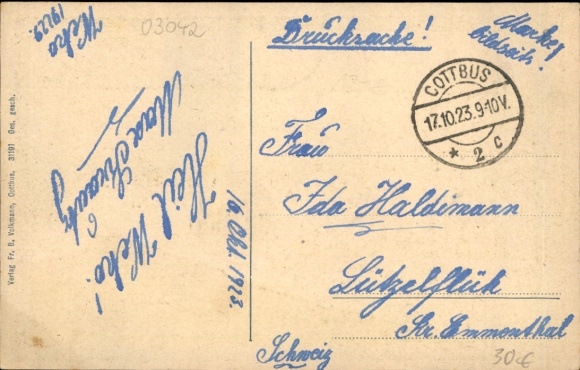 Weko
19123.
03042
Drucksache!
Marke
Bildseite!
COTTBUS
17.10.23.9-10V.
* 2 c
Heil Weko!
Max
16. Okt. 1923.
Frau
Ida Haldimann
Lützelflüh
Kr. Emmenthal
Schweiz
30€
Verlag Fr. B. Volkmann, Cottbus. 31191 Ges. gesch.